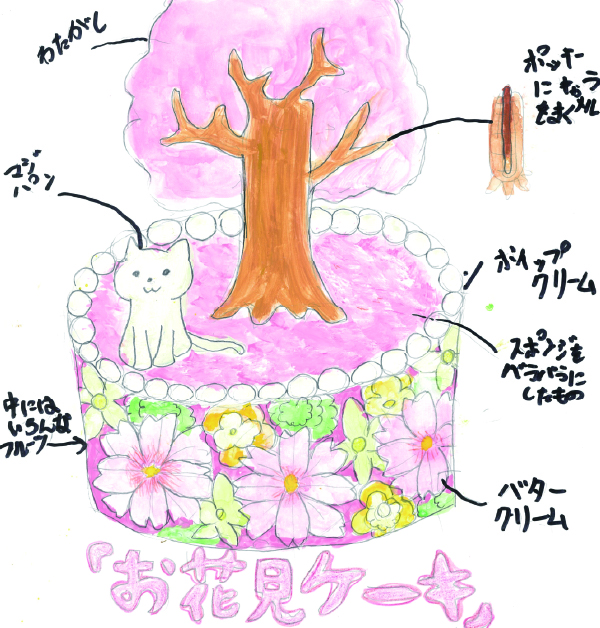 わたがし
ポッキー
にキャラ
メル
をまく
マジ
パン
ホイップ
クリーム
スポンジを
バラバラに
したもの
中には
いろんな
フルーツ
バター
クリーム
「お花見ケーキ」